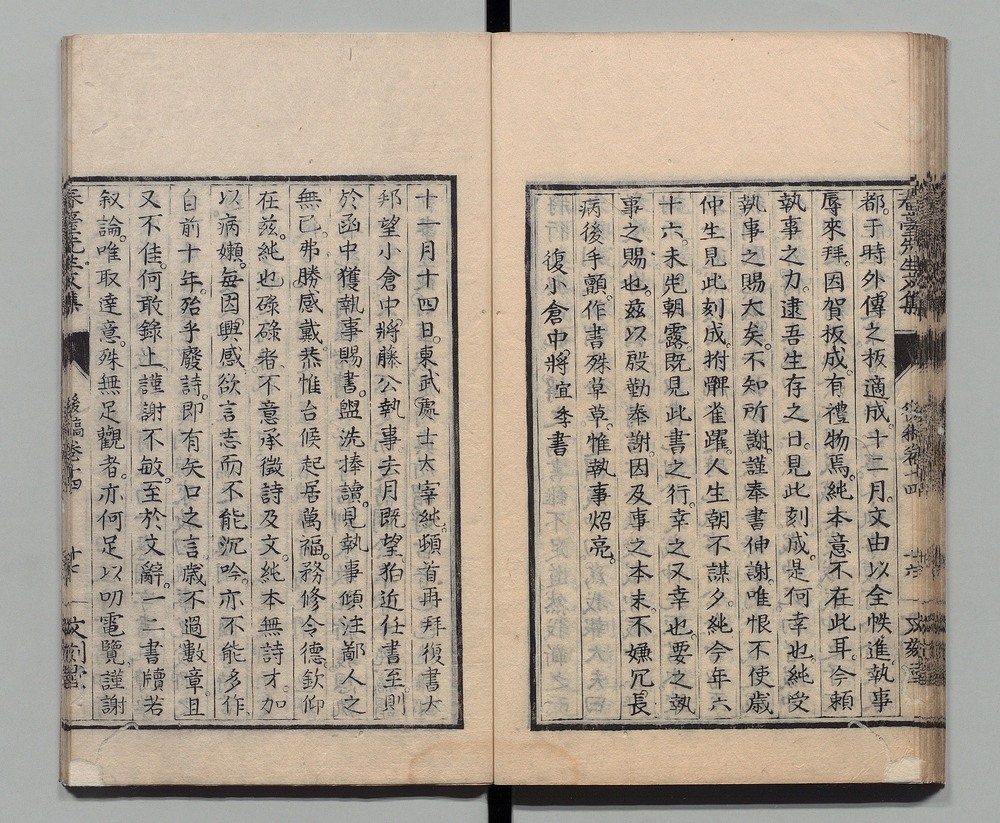 都。于時外傳之板適成。十二月。文由以全帙進。執事
辱來拜。因賀板成。有禮物焉。純本意不在此耳。今賴
執事之力。逮吾生存之日。見此刻成。是何幸也。純受
執事之賜大矣。不知所謝。謹奉書伸謝。唯恨不使歳
仲生見此刻成。拊髀雀躍。人生朝不謀夕。純今年六
十六。未先朝露。既見此書之行。幸之又幸也。要之執
事之賜也。茲以殷勤奉謝。因及事之本末。不嫌冗長。
病後手顫。作書殊草草。惟執事炤亮。
復小倉中將宜季書
十一月十四日。東武處士太宰純。頓首再拜。復書大
邦望小倉中將藤公執事。去月既望。狛近任書至。則
於函中獲執事賜書。盥洗捧讀。見執事傾注鄙人之
無已。弗勝感戴。恭惟台候起居萬福。務修令德。欽仰
在茲。純也碌碌者。不意承徵詩及文。純本無詩才。加
以病嬾。每因興感欲言志。而不能沉吟。亦不能多作。
自前十年。殆乎廢詩。即有矢口之言。歳不過數章。且
又不佳。何敢錄上。謹謝不敏。至於文辭。一二書牘若
叙論。唯取達意。殊無足觀者。亦何足以叨電覽。謹謝
春臺先生文集 後稿卷十四 十六
春臺先生文集 後稿卷十四 十七